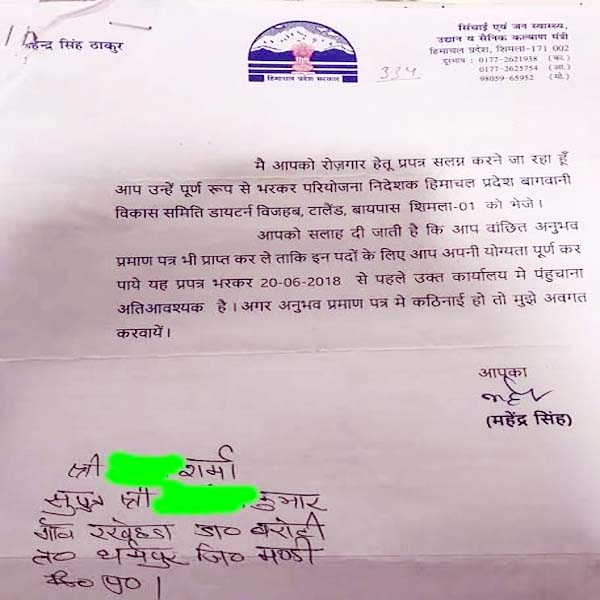 महेन्द्र सिंह ठाकुर
सिंचाई एवं जन स्वास्थ्य,
उद्यान व सैनिक कल्याण मंत्री
हिमाचल प्रदेश, शिमला-171 002
दूरभाष : 0177-2621938 (का.)
0177-2625754 (आ.)
98059-65952 (मो.)
हिमाचल प्रदेश सरकार
334
मै आपको रोज़गार हेतू प्रपत्र सलग्न करने जा रहा हूँ
आप उन्हें पूर्ण रूप से भरकर परियोजना निदेशक हिमाचल प्रदेश बागवानी
विकास समिति डायटर्न विजहब, टालैंड, बायपास शिमला-01 को भेजे।
आपको सलाह दी जाती है कि आप वांछित अनुभव
प्रमाण पत्र भी प्राप्त कर ले ताकि इन पदों के लिए आप अपनी योग्यता पूर्ण कर
पाये यह प्रपत्र भरकर 20-06-2018 से पहले उक्त कार्यालय मे पंहुचाना
अतिआवश्यक है। अगर अनुभव प्रमाण पत्र मे कठिनाई हो तो मुझे अवगत
करवायें।
आपका
(महेंद्र सिंह)
श्री शर्मा
सुपुत्र श्री कुमार
गाँव डा० बरोटी
त० धर्मपुर जि० मण्डी
हि० प्र०।